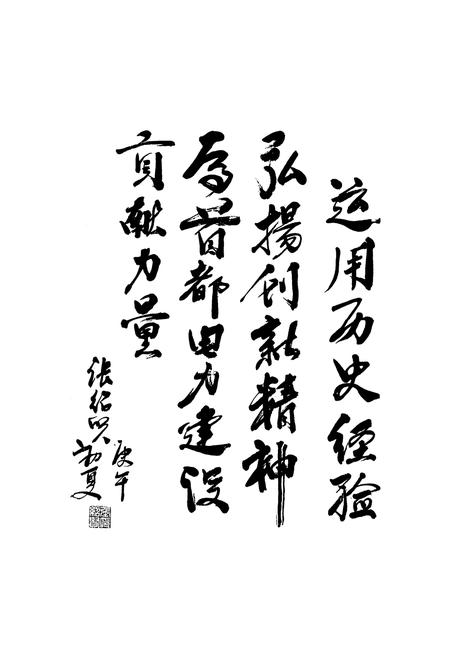 运用历史经验
弘揚创新精神
为首都电力建设
贡献力量
庚午
张绍 初夏